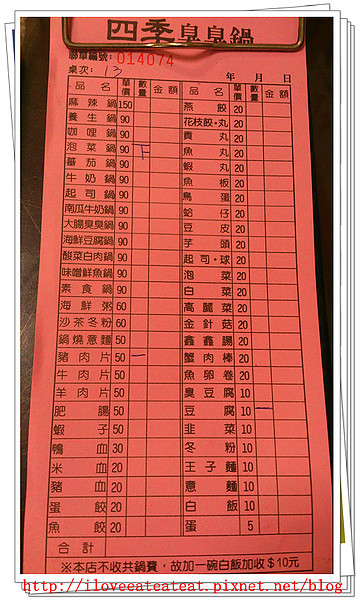 四季臭臭鍋
聯單編號: 014074
桌次: 13 年 月 日
品名 單價 數量 金額 品名 單價 數量 金額
麻辣鍋 150 燕餃 20
養生鍋 90 花枝餃·丸 20
咖哩鍋 90 貢丸 20
泡菜鍋 90 下 魚丸 20
蕃茄鍋 90 蝦丸 20
牛奶鍋 90 魚板 20
起司鍋 90 鳥蛋 20
南瓜牛奶鍋 90 蛤仔 20
大腸臭臭鍋 90 豆皮 20
海鮮豆腐鍋 90 芋頭 20
酸菜白肉鍋 90 起司·球 20
味噌鮮魚鍋 90 泡菜 20
素食鍋 90 白菜 20
海鮮粥 60 高麗菜 20
沙茶冬粉 60 金針菇 20
鍋燒意麵 50 鑫鑫腸 20
豬肉片 50 一 蟹肉棒 20
牛肉片 50 魚卵卷 20
羊肉片 50 臭豆腐 10
肥腸 50 豆腐 10 一
蝦子 50 韭菜 10
鴨血 30 冬粉 10
米血 20 王子麵 10
豬血 20 意麵 10
蛋餃 20 白飯 10
魚餃 20 蛋 5
合計
※本店不收共鍋費，故加一碗白飯加收$10元
http://iloveeateateat.pixnet.net/blog